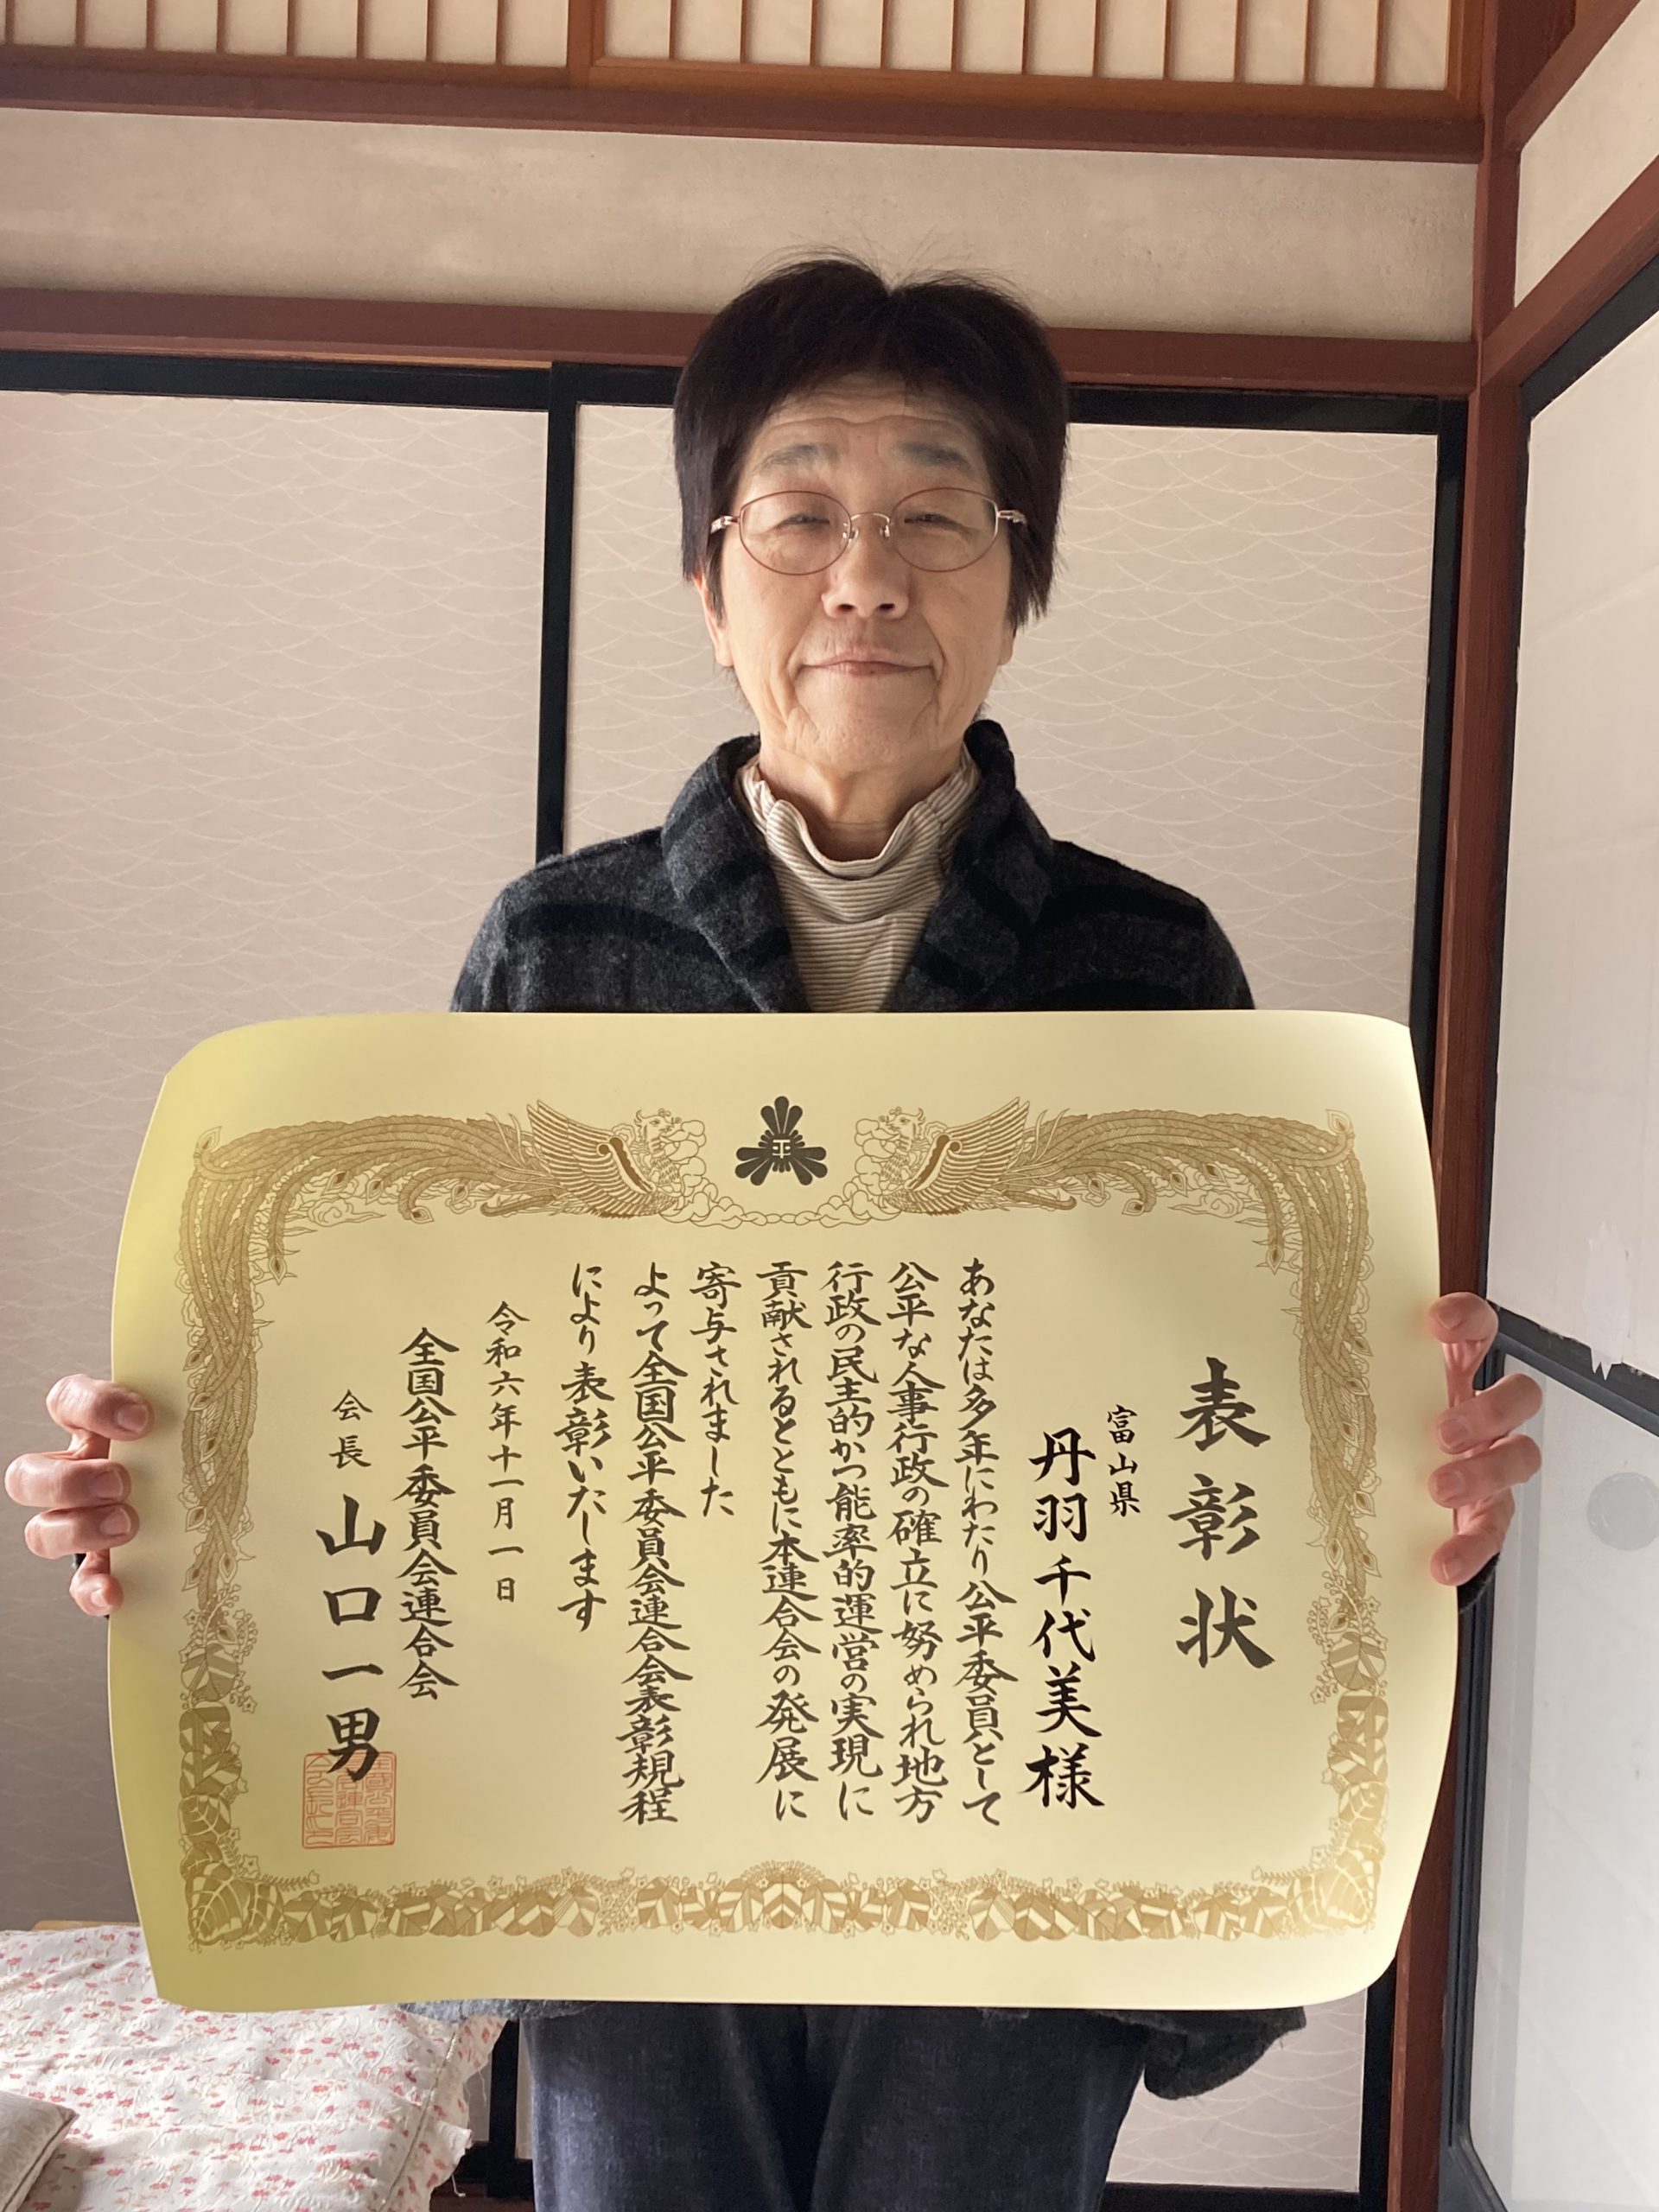 平
表彰状
富山県
丹羽千代美様
あなたは多年にわたり公平委員として
公平な人事行政の確立に努められ地方
行政の民主的かつ能率的運営の実現に
貢献されるとともに本連合会の発展に
寄与されました
よって全国公平委員会連合会表彰規程
により表彰いたします
令和六年十一月一日
全国公平委員会連合会
会長 山口一男